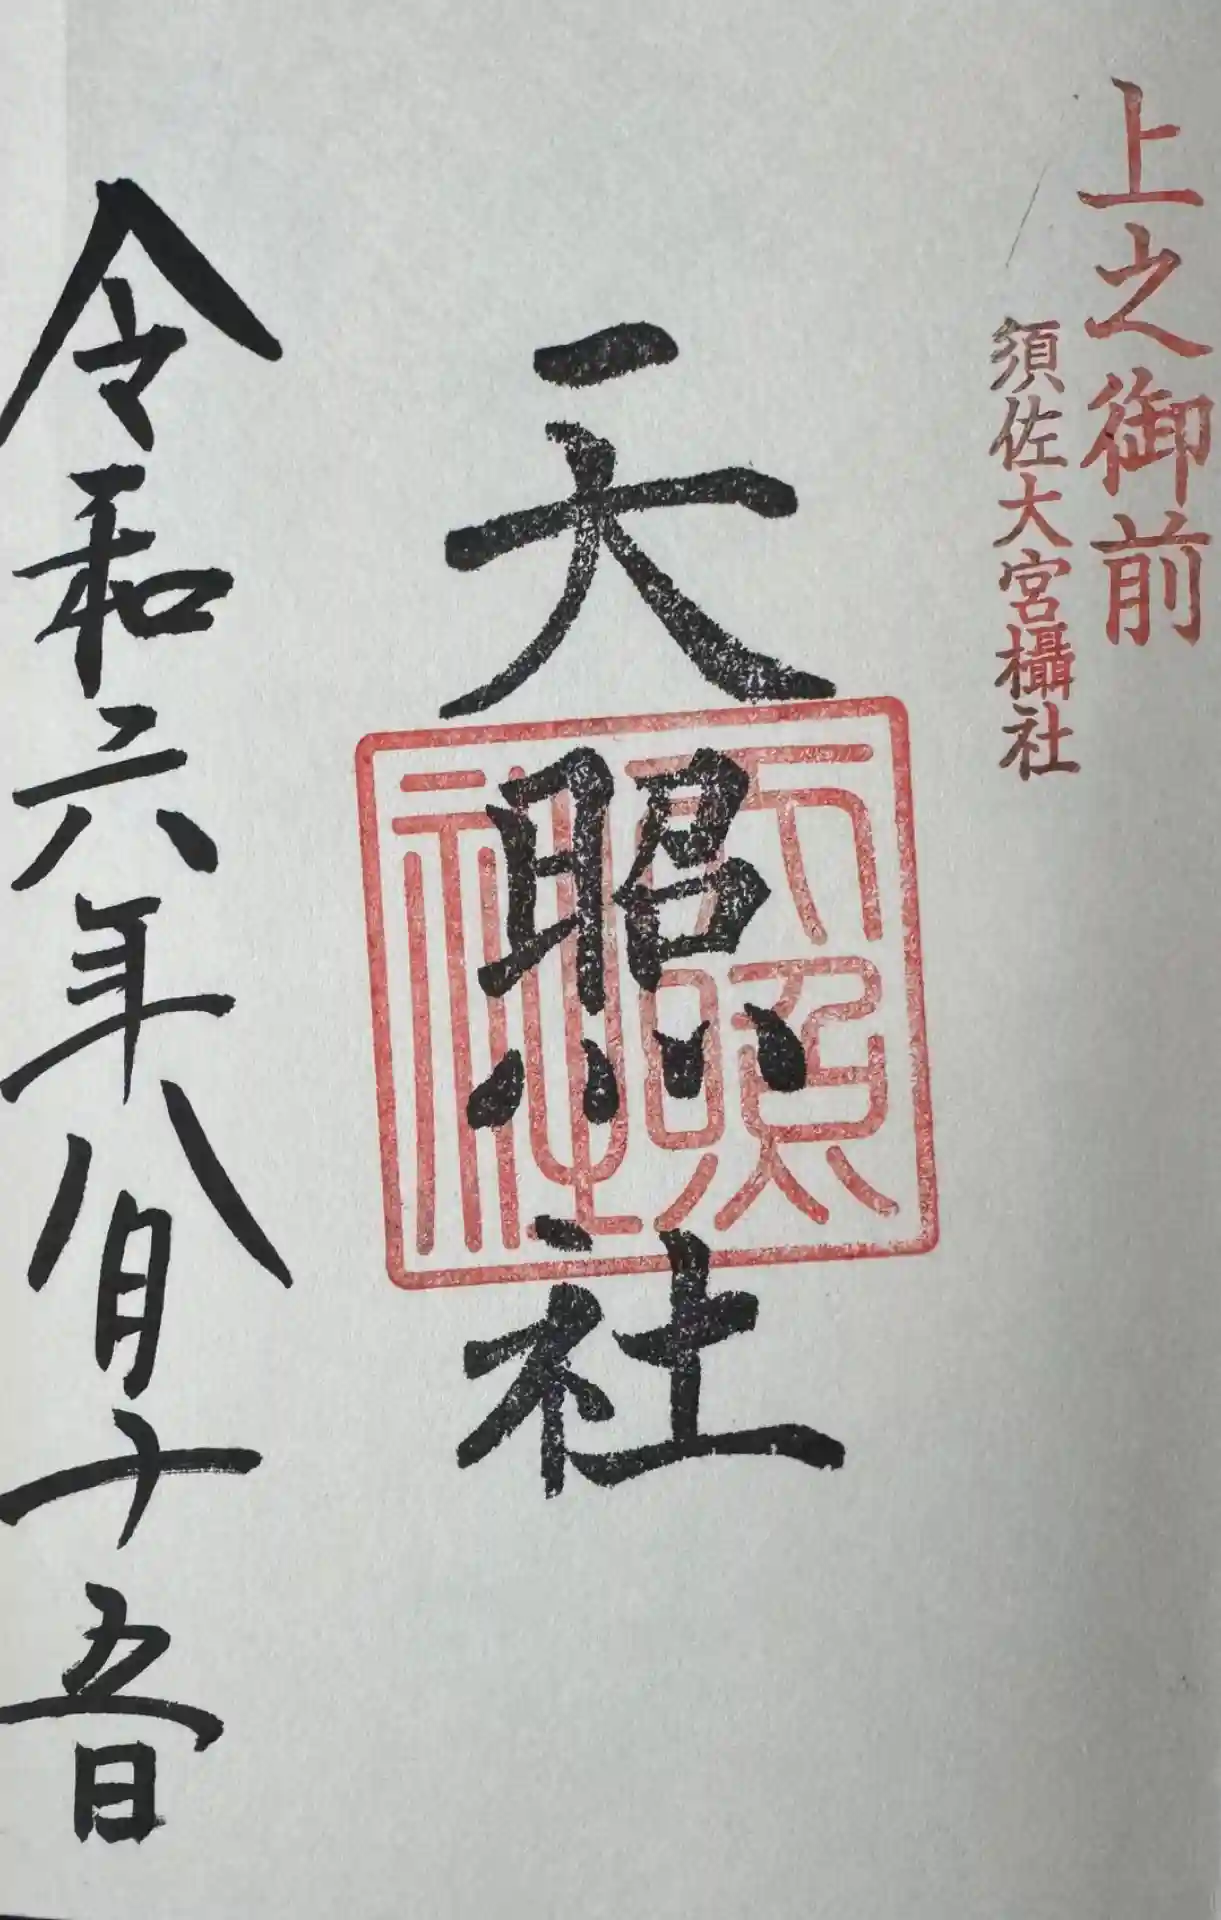 上之御前
須佐大宮攝社
天照社
天照社
令和六年八月十五日